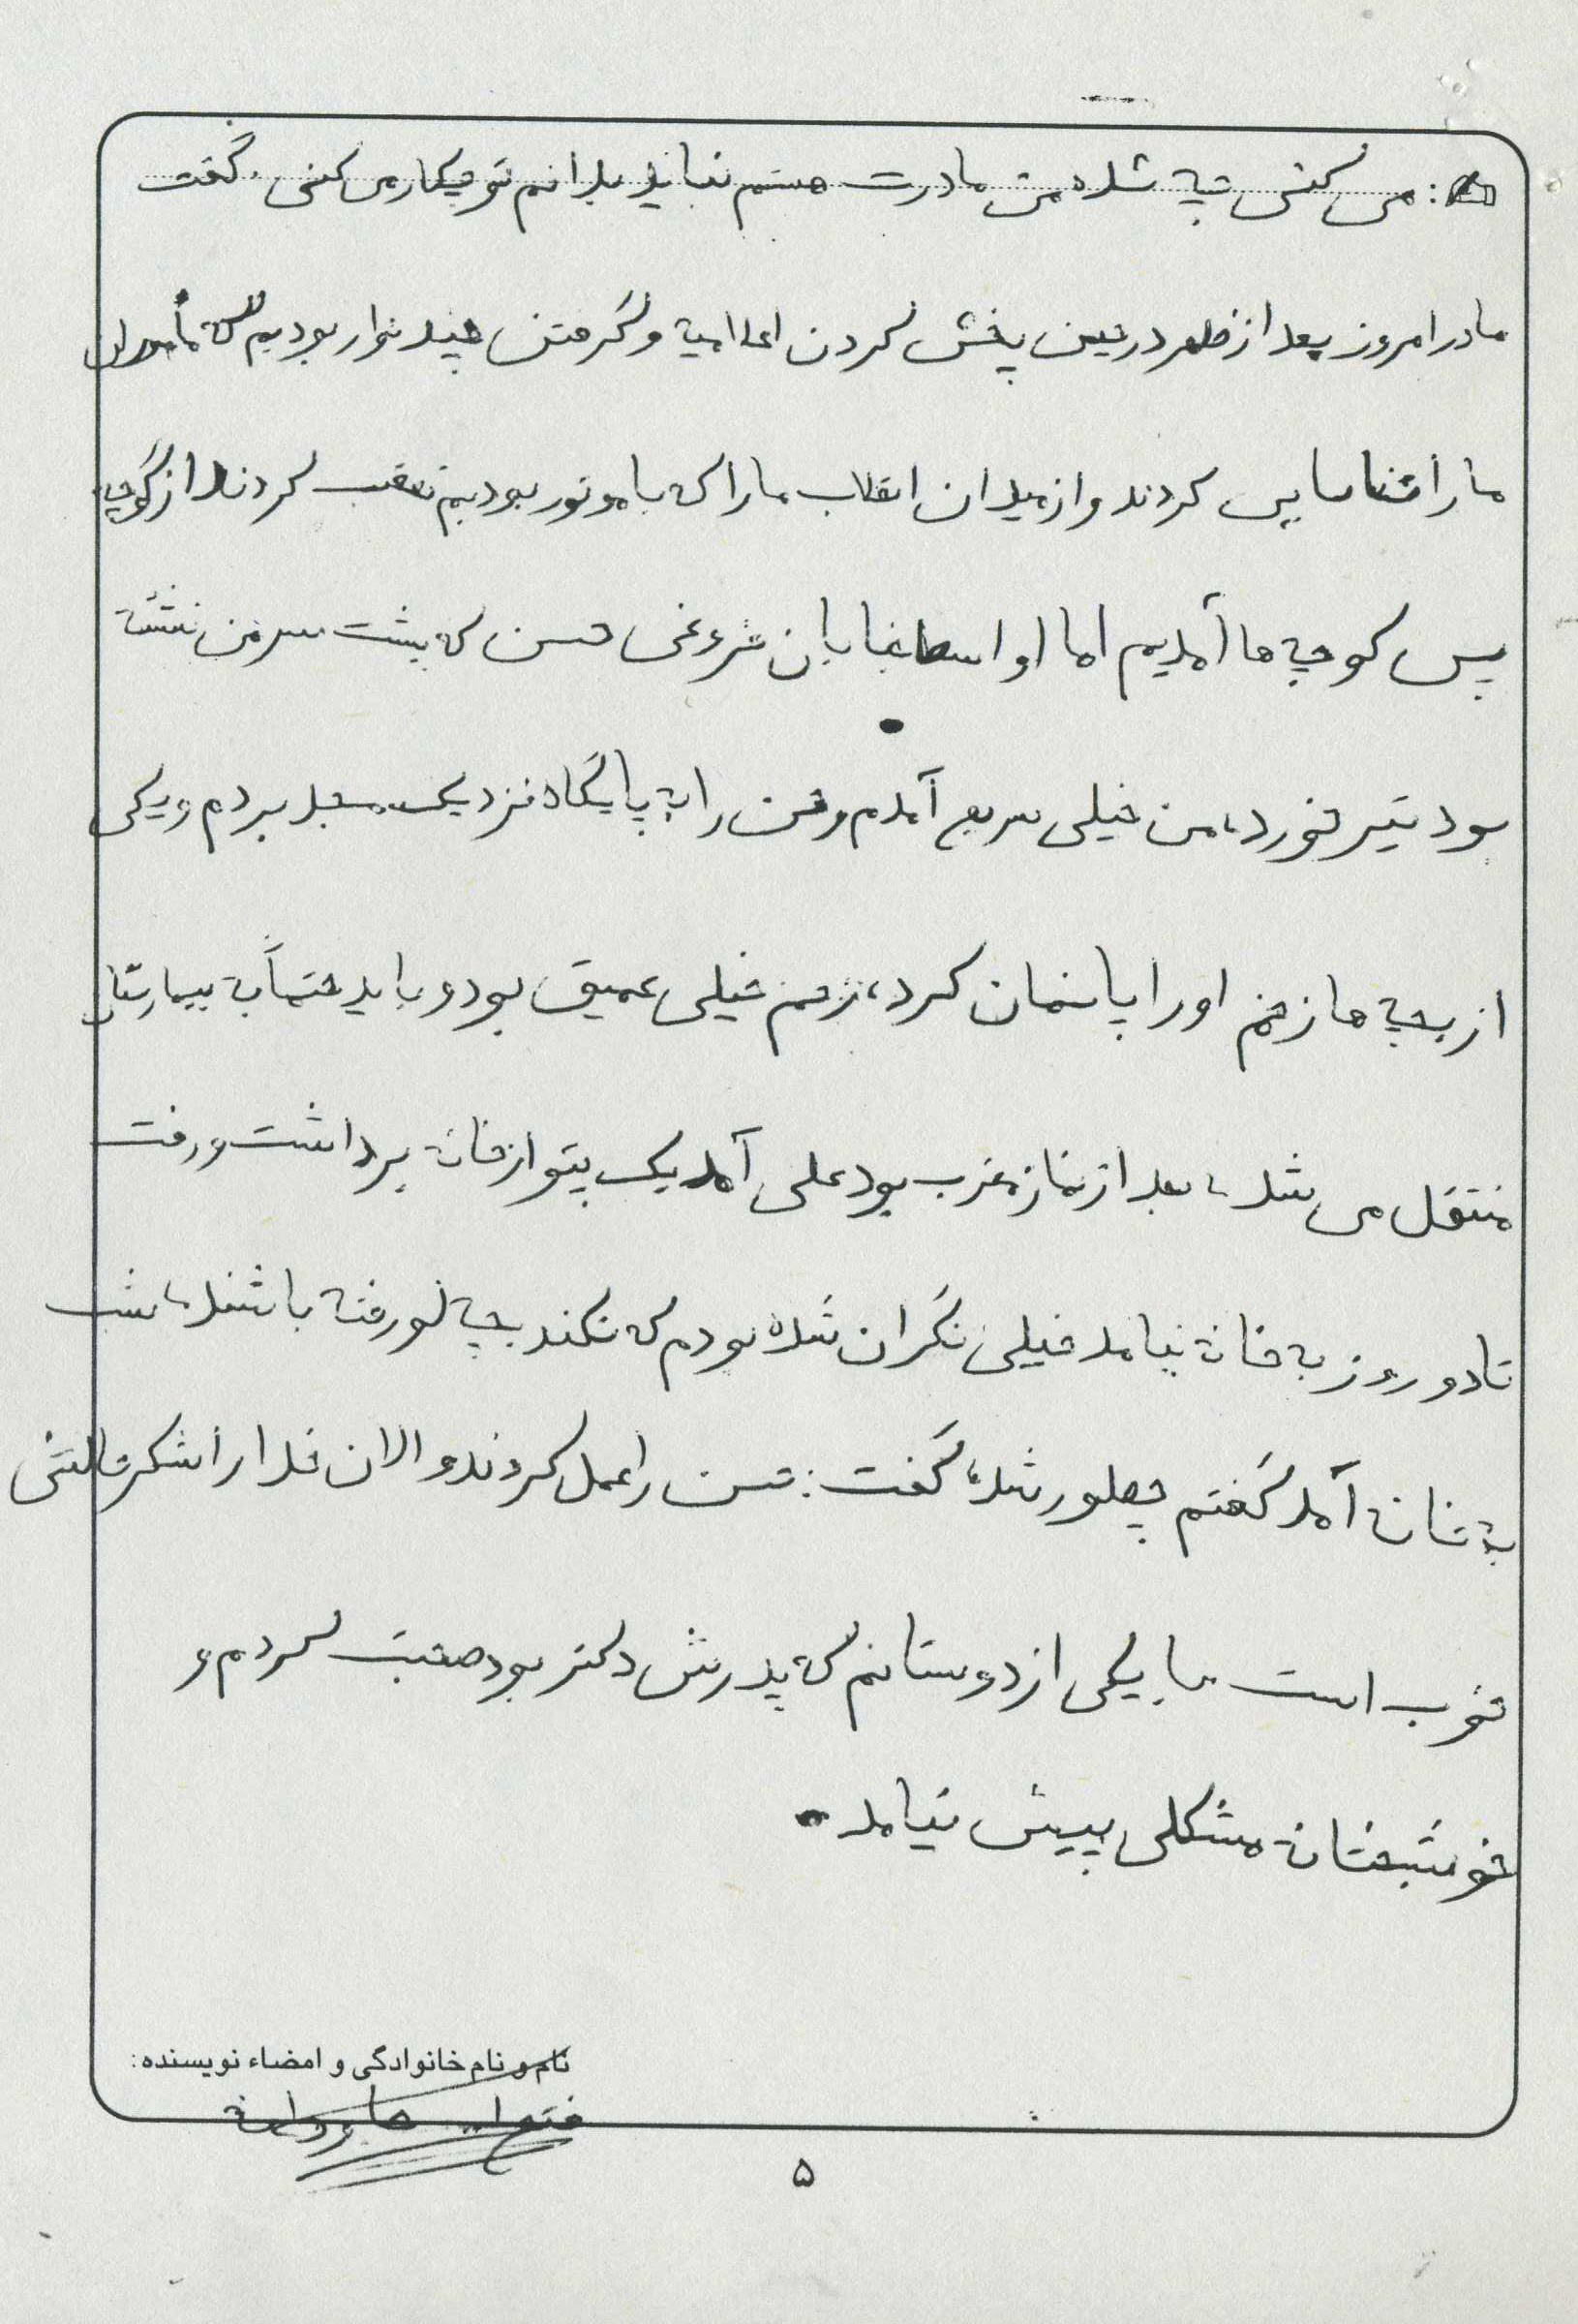 می کنی چه شده من مادرت هستم نباید بدانم تو چیکار می کنی. گفت
مادر امروز بعد از ظهر در حین پخش کردن اعلامیه و گرفتن چند نوار بودیم که مأموران
ما را شناسایی کردند و از میدان انقلاب ما را که با موتور بودیم تعقیب کردند از کوچه
پس کوچه ها آمدیم اما اواسط خیابان شروغی حسن که پشت سر من نشسته
بود تیر خورد، من خیلی سریع آمدم و حسن را به پایگاه نزدیک مسجد بردم و یکی
از بچه ها زخم او را پانسمان کرد، زخم خیلی عمیق بود و باید حتماً به بیمارستان
منتقل می شد، بعد از نماز مغرب بود علی آمد یک پتو از خانه برداشت و رفت
تا دو روز به خانه نیامد خیلی نگران شده بودم که نکند بچه لو رفته باشند، شب
به خانه آمد گفتم چطور شد؟ گفت: حسن را عمل کردند و الان خدا را شکر حالش
خوب است با یکی از دوستانم که پدرش دکتر بود صحبت کردم و
خوشبختانه مشکلی پیش نیامد.
نام و نام خانوادگی و امضاء نویسنده:
۵